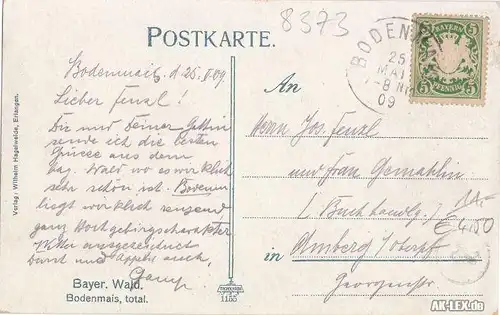 8373
POSTKARTE.
BODENMAIS
25
MAI
7-8 N
09
BAYERN
5 5
PFENNIG
5 5
Bodenmais, d 25. V 09
Lieber Fenzl!
Dir und Deiner Gattin
sende ich die besten
Grüsse aus dem
bay. Wald wo es wirklich
sehr schön ist. Bodenm.
liegt wirklich reizend
ganz Hochgebirgscharakter
Wetter ausgezeichnet
Durst und Appetit auch.
An
Herrn Jos. Fenzl
und Frau Gemahlin
(Buchhandlg.)
in Amberg /Oberpf
Georgenstr
14.-
€ 4,50
Verlag: Wilhelm Hagelweide, Erlangen.
Bayer. Wald.
Bodenmais, total.
1155
AK-LEX.de